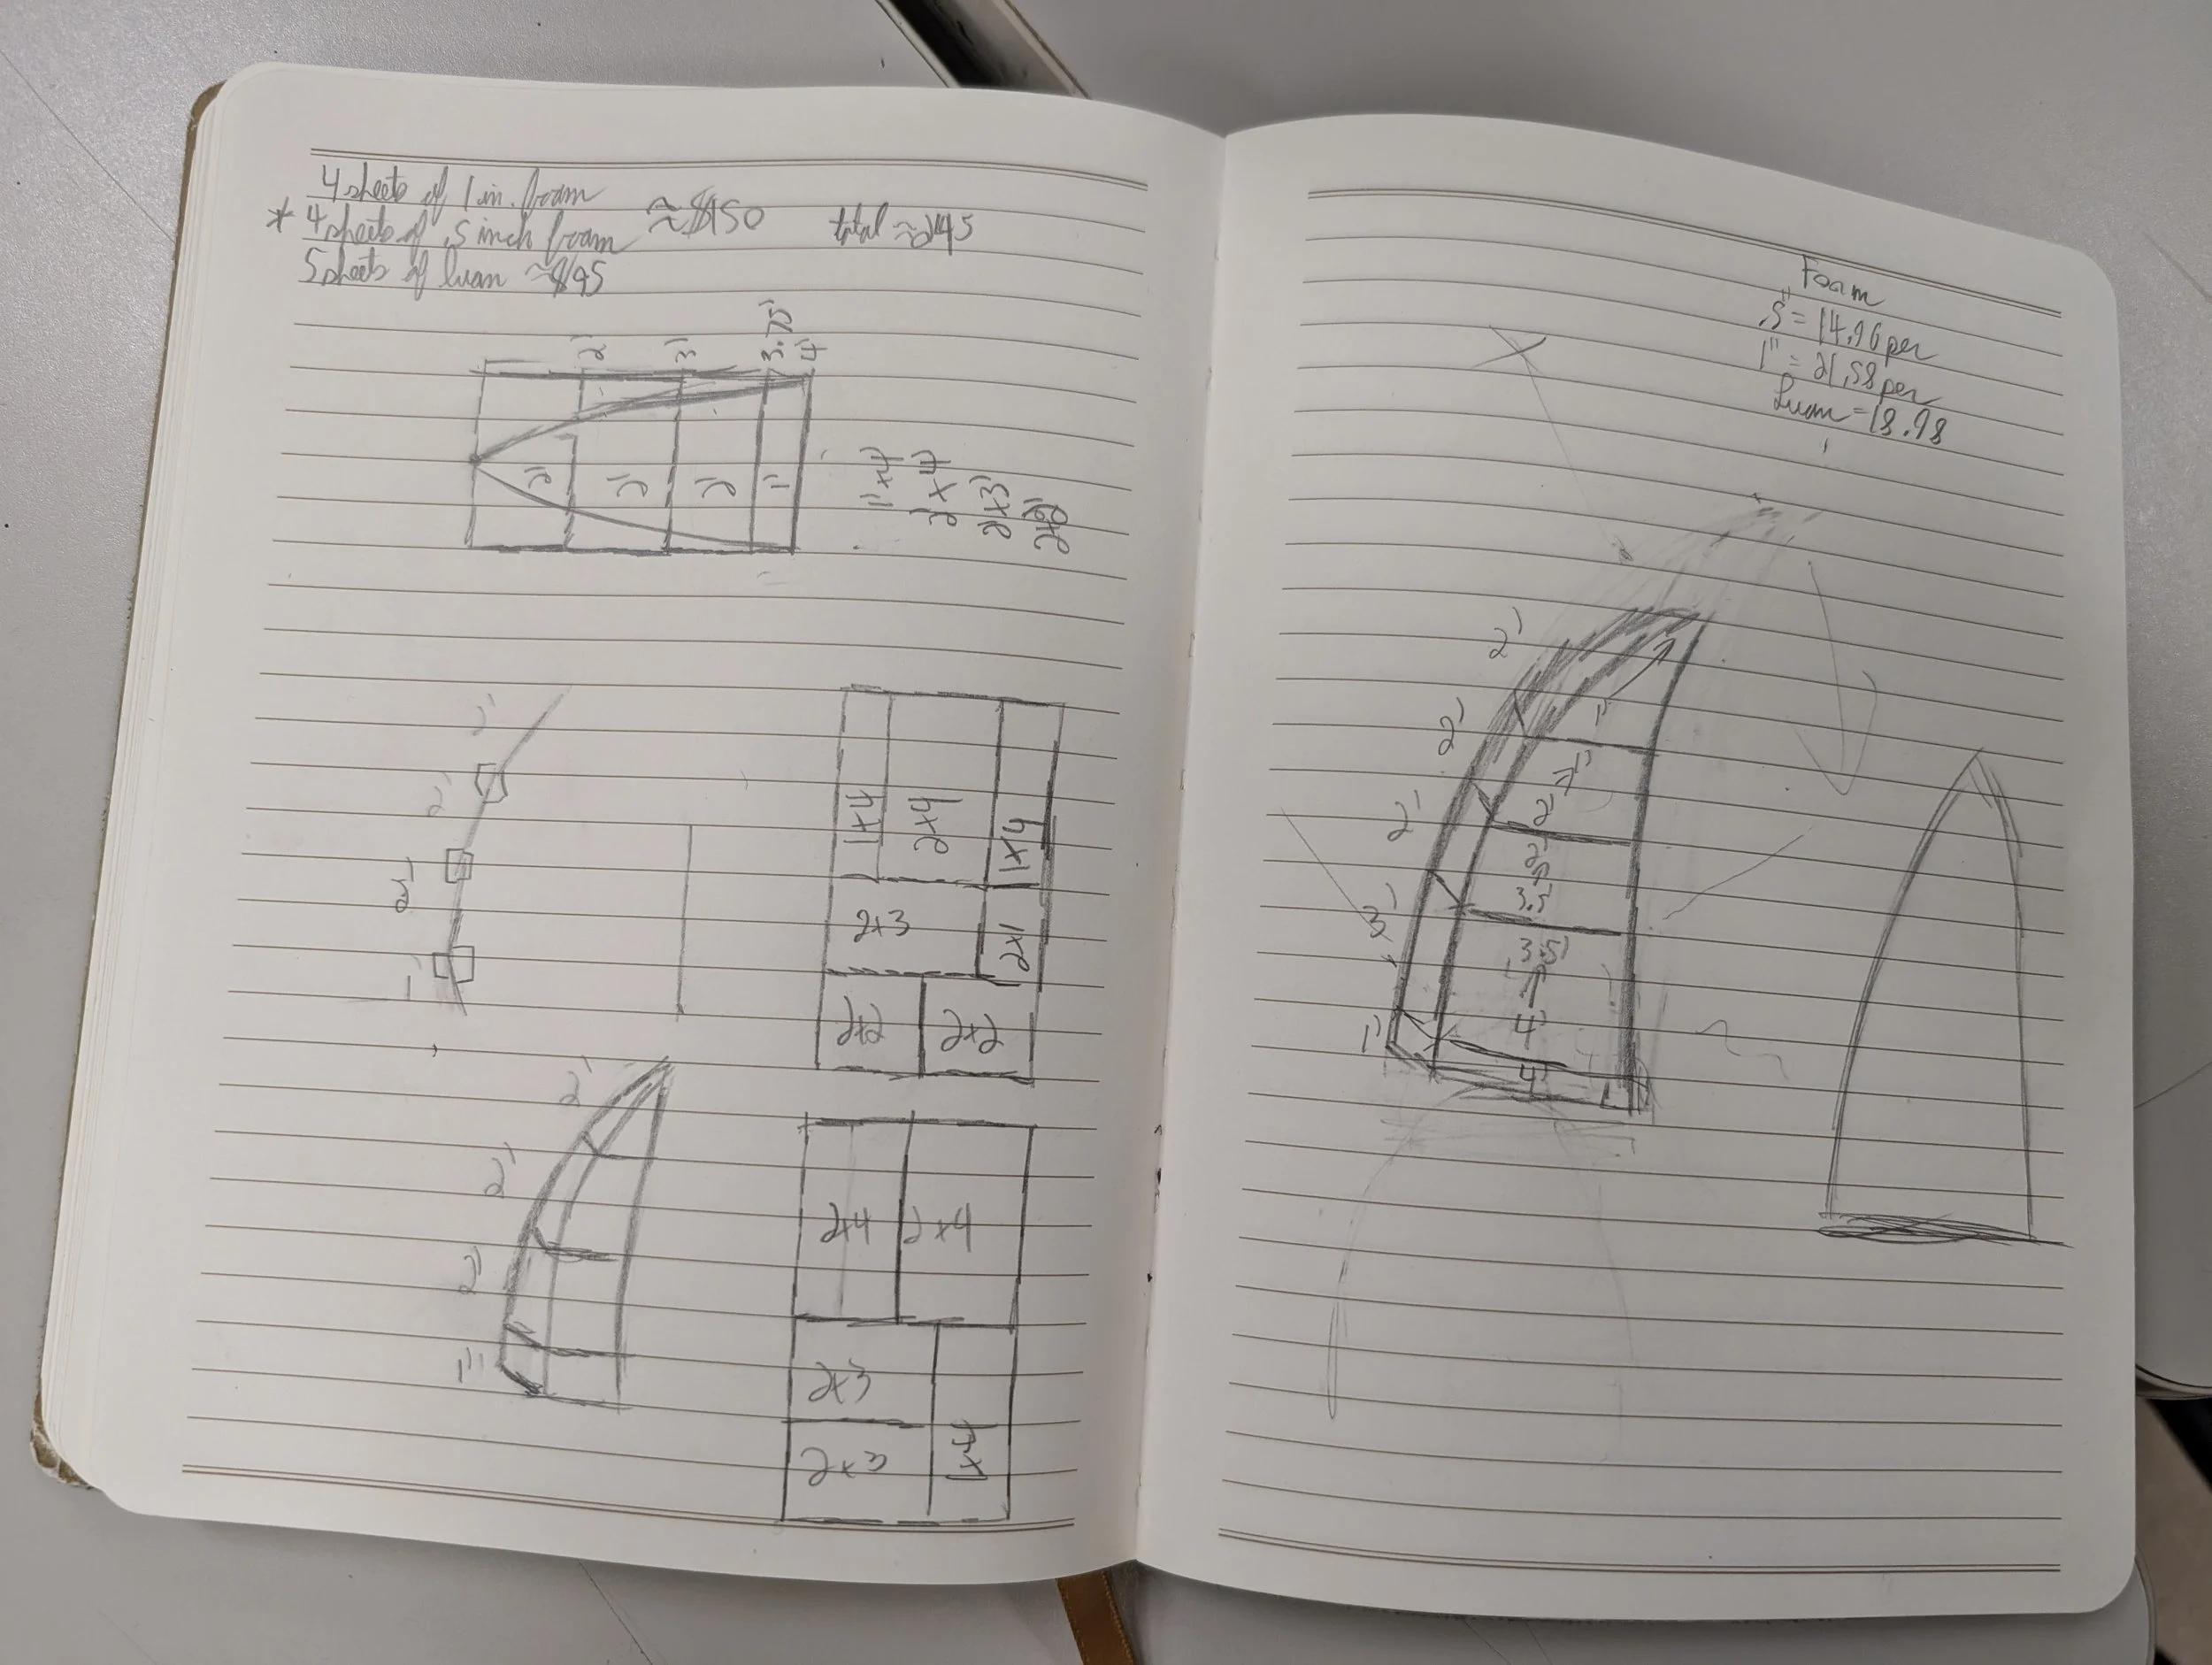 4 sheets of 1 in. foam
* 4 sheets of .5 inch foam ≈$150 total ≈245
5 sheets of luan ≈$95
2' 3' 3.75' 4'
2' 2' 2' 1'
1'x4'
2'x4'
2'x3'
2'x2'
2'
2'
2'
1'
1x4 2x4 1x4
2x3 2x1
2x2 2x2
2'
2'
2'
1'
2x4 2x4
2x3
2x3 1x4
Foam
.5" = 14.96 per
1" = 21.58 per
Luan = 18.98
2'
2' 1'
1'
2' 2'
2'
3.5'
3' 3.5'
4'
1' 4'